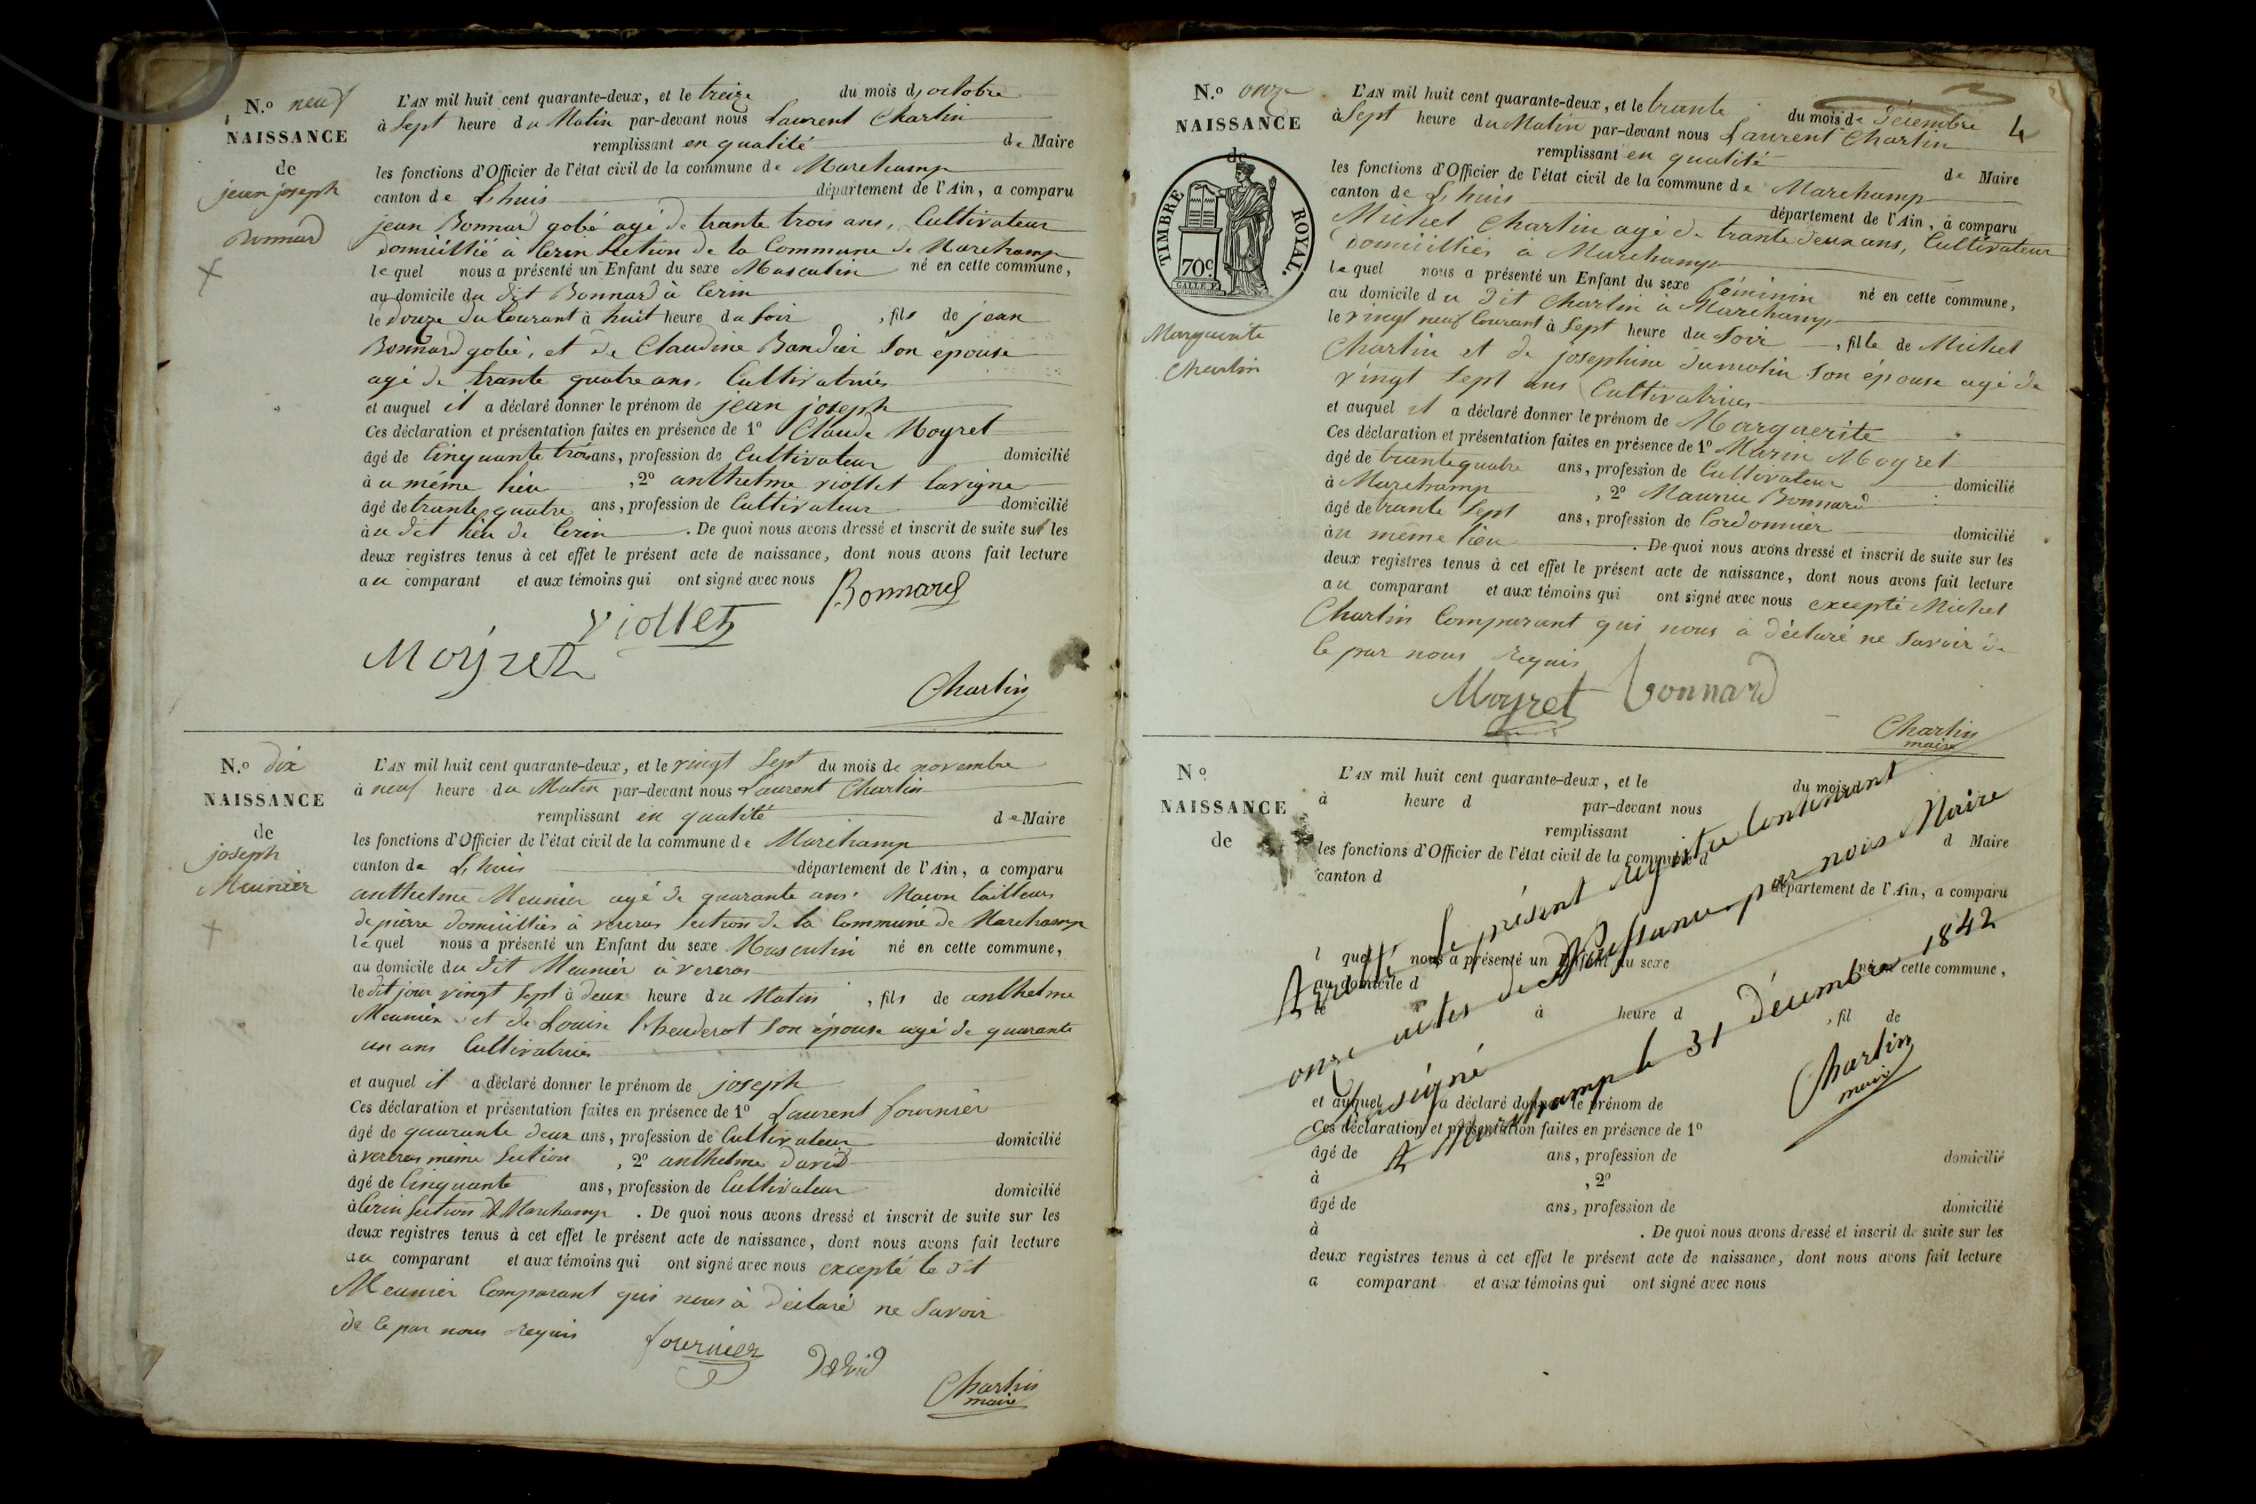 N.o neuf
NAISSANCE
de
jean joseph
Bonnard
L'AN mil huit cent quarante-deux, et le treize du mois d'octobre
à Sept heure du Matin par-devant nous Laurent Charlin
remplissant en qualité de Maire
les fonctions d'Officier de l'état civil de la commune de Marchamp
canton de Lhuis département de l'Ain, a comparu
jean Bonnard gobé agé de trante trois ans, Cultivateur
domicillié à Cerin Section de la Commune de Marchamp
lequel nous a présenté un Enfant du sexe Masculin né en cette commune,
au domicile du dit Bonnard à Cerin
le douze du Courant à huit heure du soir , fils de jean
Bonnard gobé, et de Claudine Bandier Son épouse
agé de trante quatre ans, Cultivatrice
et auquel il a déclaré donner le prénom de jean joseph
Ces déclaration et présentation faites en présence de 1o Claude Moyret
âgé de Cinquante trois ans, profession de Cultivateur domicilié
à u même lieu , 2o anthelme viollet lavigne
âgé de trante quatre ans, profession de Cultivateur domicilié
à u dit lieu de Cerin . De quoi nous avons dressé et inscrit de suite sur les
deux registres tenus à cet effet le présent acte de naissance, dont nous avons fait lecture
au comparant et aux témoins qui ont signé avec nous
Bonnard
Viollet
Moyret
Charlin
N.o dix
NAISSANCE
de
joseph
Meunier
L'AN mil huit cent quarante-deux, et le vingt Sept du mois de novembre
à neuf heure du Matin par-devant nous Laurent Charlin
remplissant en qualité de Maire
les fonctions d'Officier de l'état civil de la commune de Marchamp
canton de Lhuis département de l'Ain, a comparu
anthelme Meunier agé de quarante ans, Macon tailleur
de pierre domicilliés à vereras Section de la Commune de Marchamp
lequel nous a présenté un Enfant du sexe Masculin né en cette commune,
au domicile du dit Meunier à vereras
le dit jour vingt Sept à deux heure du Matin , fils de anthelme
Meunier et de Louise Son épouse agé de quarante
un ans Cultivatrice
et auquel il a déclaré donner le prénom de joseph
Ces déclaration et présentation faites en présence de 1o Laurent fournier
âgé de quarante deux ans, profession de Cultivateur domicilié
à vereras même Section , 2o anthelme david
âgé de Cinquante ans, profession de Cultivateur domicilié
à Cerin Section de Marchamp . De quoi nous avons dressé et inscrit de suite sur les
deux registres tenus à cet effet le présent acte de naissance, dont nous avons fait lecture
au comparant et aux témoins qui ont signé avec nous excepté le dit
Meunier Comparant qui nous à déclaré ne Savoir
de ce par nous requis
fournier
David
Charlin
maire
4
N.o onze
NAISSANCE
de
TIMBRE ROYAL.
70c
Marguerite
Charlin
L'AN mil huit cent quarante-deux, et le trante du mois de décembre
à Sept heure du Matin par-devant nous Laurent Charlin
remplissant en qualité de Maire
les fonctions d'Officier de l'état civil de la commune de Marchamp
canton de Lhuis département de l'Ain, a comparu
Michel Charlin agé de trante deux ans, Cultivateur
domicilliés à Marchamp
lequel nous a présenté un Enfant du sexe féminin né en cette commune,
au domicile du dit Charlin à Marchamp
le vingt neuf Courant à Sept heure du Soir , fille de Michel
Charlin et de josephine dumolin Son épouse agé de
vingt Sept ans Cultivatrice
et auquel il a déclaré donner le prénom de Marguerite
Ces déclaration et présentation faites en présence de 1o Marin Moyret
âgé de trante quatre ans, profession de Cultivateur domicilié
à Marchamp , 2o Maurice Bonnard
âgé de trante Sept ans, profession de Cordonnier domicilié
à u même lieu . De quoi nous avons dressé et inscrit de suite sur les
deux registres tenus à cet effet le présent acte de naissance, dont nous avons fait lecture
au comparant et aux témoins qui ont signé avec nous excepté Michel
Charlin Comparant qui nous à déclaré ne Savoir de
ce par nous requis
Moyret
bonnard
Charlin
maire
N.o
NAISSANCE
de
L'AN mil huit cent quarante-deux, et le du mois
à heure d par-devant nous
remplissant d Maire
les fonctions d'Officier de l'état civil de la commune d
canton d département de l'Ain, a comparu
l quel nous a présenté un Enfant du sexe né en cette commune,
au domicile d
le à heure d , fil de
et auquel a déclaré donner le prénom de
Ces déclaration et présentation faites en présence de 1o
âgé de ans, profession de domicilié
à , 2o
âgé de ans, profession de domicilié
à . De quoi nous avons dressé et inscrit de suite sur les
deux registres tenus à cet effet le présent acte de naissance, dont nous avons fait lecture
a comparant et aux témoins qui ont signé avec nous
Arrêté le présent registre Contenant
onze actes de Naissance par nous Maire
Soussigné
A Marchamp le 31 décembre 1842
Charlin
maire